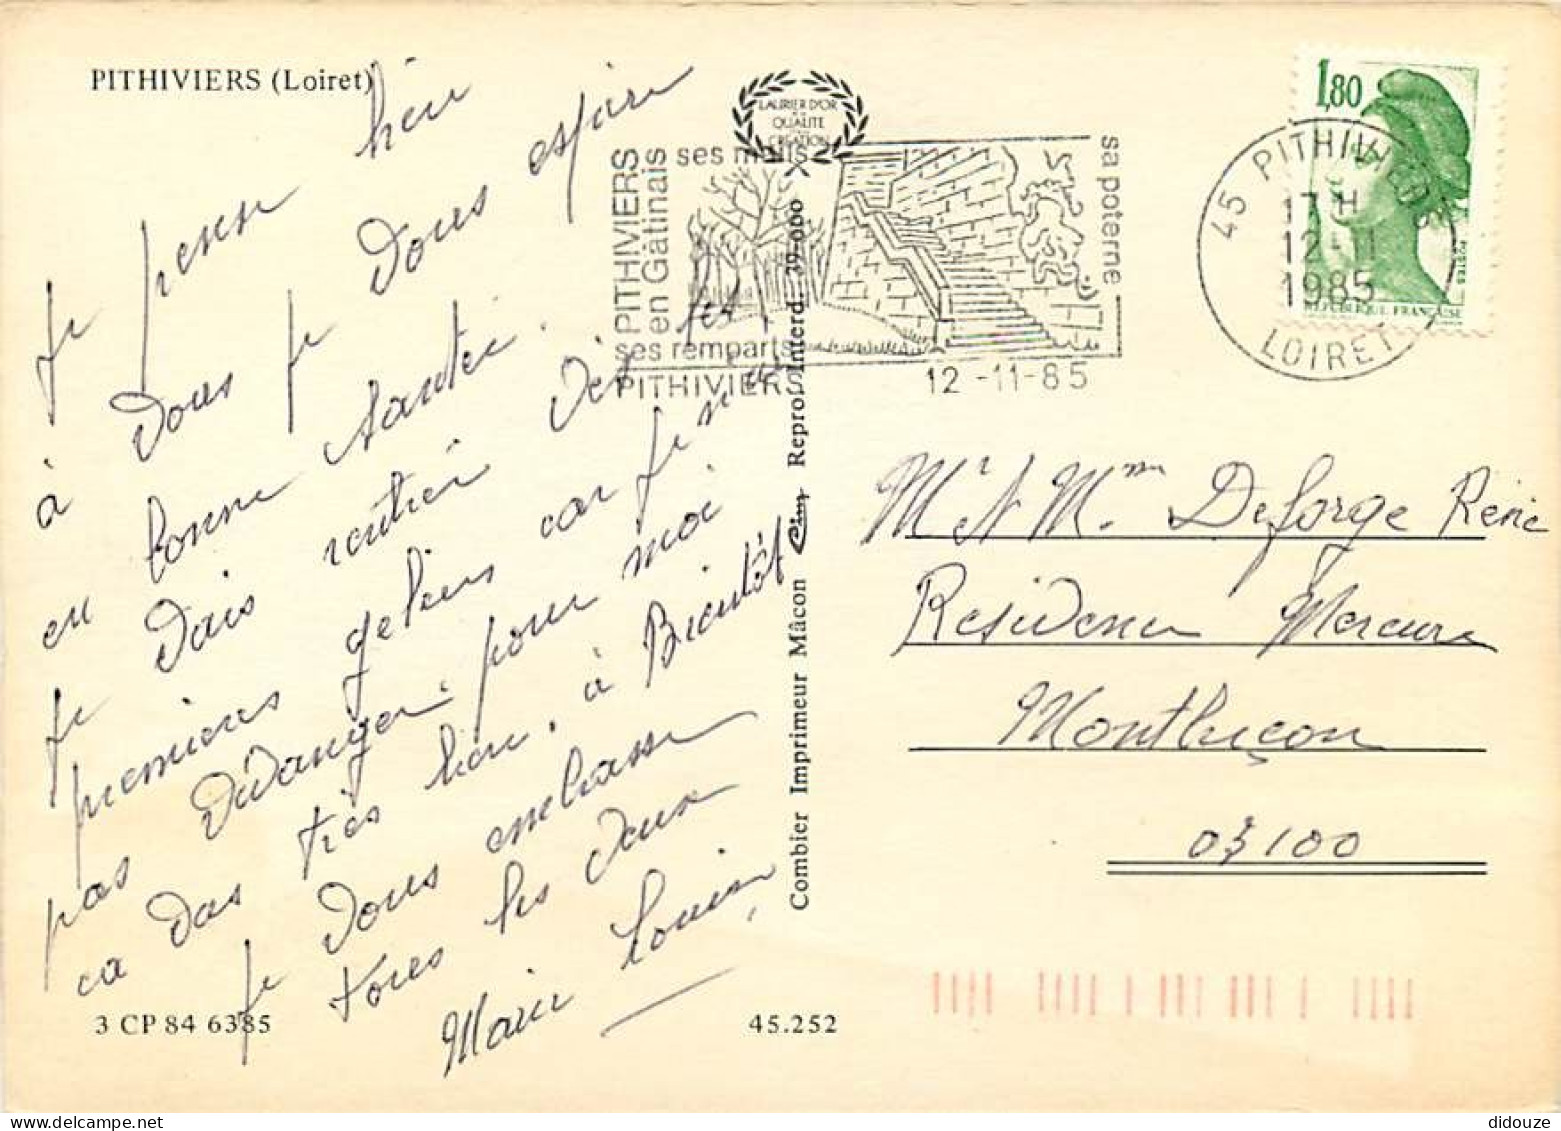 PITHIVIERS (Loiret)
Je pense bien
à vous je vous espère
en bonne santé.
je vais rentrer dès les
premiers gelées car je n'ai
pas d'danger pour moi
ca vas très bien, à Bientôt
je vous embrasse
tous les deux
Marie Louise
3 CP 84 6385
45.252
Combier Imprimeur Mâcon Cim Repro. Interd. 39-000
LAURIER D'OR
QUALITE
CREATION
PITHIVIERS
en Gâtinais
ses mails
sa poterne
ses remparts
PITHIVIERS
12-11-85
1,80
POSTES
REPUBLIQUE FRANÇAISE
45 PITHIVIERS
17 H
12-11
1985
LOIRET
Mr et Mme Deforge Réné
Résidence Mercure
Montluçon
03100
didouze